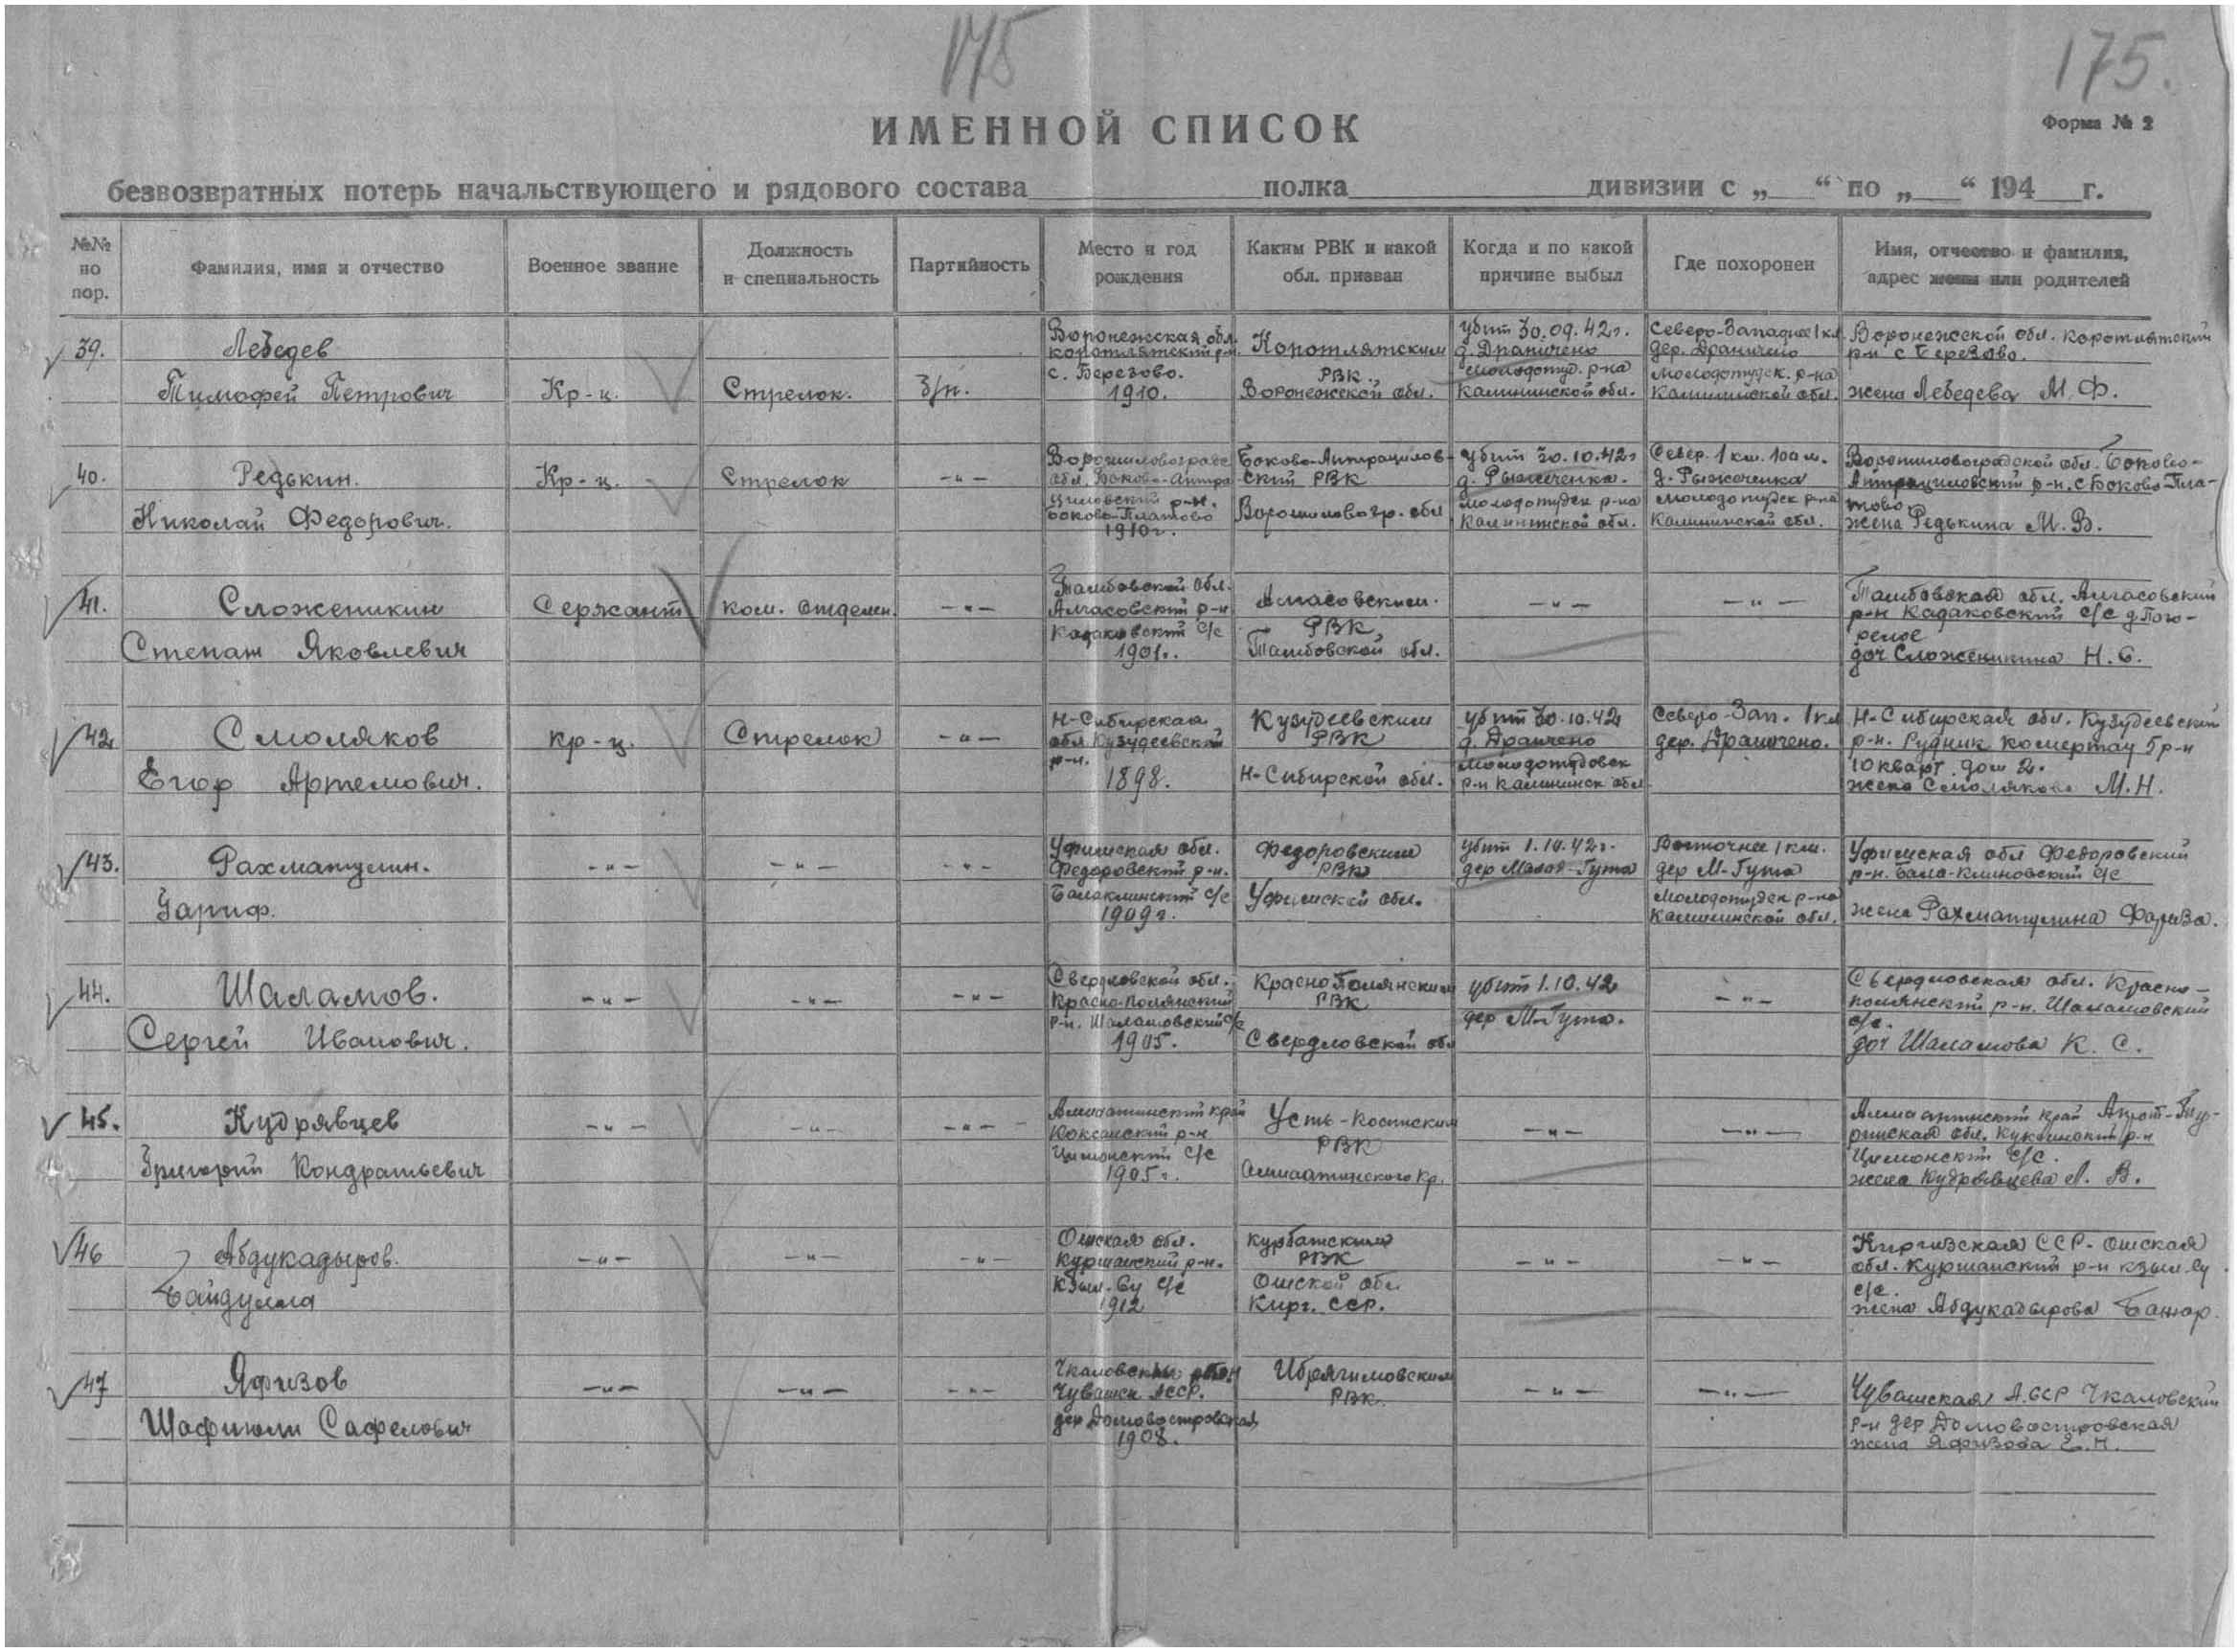 175
175.
ИМЕННОЙ СПИСОК
Форма № 2
безвозвратных потерь начальствующего и рядового состава полка дивизии с „ “ по „ “ 194 г.
№№ по пор.
Фамилия, имя и отчество
Военное звание
Должность и специальность
Партийность
Место и год рождения
Каким РВК и какой обл. призван
Когда и по какой причине выбыл
Где похоронен
Имя, отчество и фамилия, адрес жены или родителей
39.
Лебедев
Тимофей Петрович
Кр-ц.
Стрелок.
б/п.
Воронежская обл.
коротоякский р-н.
с. Березово.
1910.
Коротоякским
РВК.
Воронежской обл.
убит 30.09.42г.
д. Драничено
Молодотуд. р-на
Калининской обл.
Северо-Западнее 1 км
дер. Драничено
Молодотудск. р-на
Калининской обл.
Воронежской обл. Коротоякский
р-н с Березово.
жена Лебедева М. Ф.
40.
Редькин.
Николай Федорович.
Кр-ц.
Стрелок
-"-
Ворошиловоградс
обл. Боково-Антра
циловский р-н.
Боково-Платово
1910г.
Боково-Антрацилов-
ский РВК
Ворошиловогр. обл
убит 30.10.42г
д. Рыжеченка.
Молодотудск р-на
Калининской обл.
Север. 1 км. 100 м.
д. Рыжоченка
Молодотудск р-на
Калининской обл.
Ворошиловоградской обл. Боково-
Антрациловский р-н. с Боково-Пла-
тово.
жена Редькина М. В.
41.
Сложеникин
Степан Яковлевич
Сержант
ком. отделен.
-"-
Тамбовской обл.
Алгасовский р-н
Кадаковский с/с
1901г.
Алгасовским.
РВК
Тамбовской обл.
-"-
-"-
Тамбовская обл. Алгасовский
р-н Кадаковский с/с д Пого-
релое
доч Сложеникина Н. С.
42
Смоляков
Егор Артемович.
кр-ц.
Стрелок
-"-
Н-Сибирская
обл. Кузудеевский
р-н.
1898.
Кузудеевским
РВК
Н-Сибирской обл.
убит 30.10.42
д. Дранчено
Молодотудовск
р-н Калининск обл
Северо-Зап. 1 км
дер. Драничено.
Н-Сибирская обл. Кузудеевский
р-н. Рудник комертау 5 р-н
10 кварт. дом 2.
жена Смолякова М. Н.
43.
Рахматулин.
Гариф.
-"-
-"-
-"-
Уфимская обл.
Федоровский р-н.
Балаклинский с/с
1909г.
Федоровским
РВК
Уфимской обл.
убит 1.10.42г.
дер Малая-Гута
Восточнее 1 км.
дер М-Гута
Молодотудск р-на
Калининской обл.
Уфимская обл Федоровский
р-н. Бала-клиновский с/с
жена Рахматулина
44.
Шаламов.
Сергей Иванович.
-"-
-"-
-"-
Свердловской обл.
Красно-полянский
р-н. Шаламовский с/с
1905.
Красно Полянским
РВК
Свердловской обл
убит 1.10.42
дер М-Гута.
-"-
Свердловская обл. Красно-
полянский р-н. Шаламовский
с/с.
доч Шаламова К. С.
45.
Кудрявцев
Григорий Кондратьевич
-"-
-"-
-"-
Алмаатинский край
р-н
Цимонский с/с
1905г.
Усть-
РВК
Алмаатинского Кр.
-"-
-"-
Алмаатинский край
обл. р-н
Цимонский с/с.
жена Кудрявцева А. В.
46
Абдукадыров.
Байдулла
-"-
-"-
-"-
Ошская обл.
Куршанский р-н.
Кзыл-Су с/с
1912
РВК
Ошской обл.
Кирг. ССР.
-"-
-"-
Киргизская ССР-Ошская
обл. Куршанский р-н кзыл.су
с/с.
жена Абдукадырова
47
Яфизов
Шафиюли Сафелович
-"-
-"-
-"-
Чувашск АССР.
дер Домовостровская
1908.
Ибрягимовским
РВК.
-"-
-"-
Чувашская А.ССР Чкаловский
р-н дер Домовостровская
жена Яфизова Е. Н.